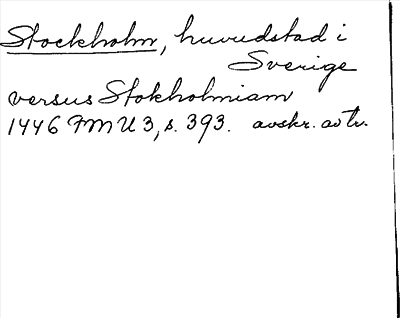 Stockholm, huvudstad i
Sverige
versus Stokholmiam
1446 FMU 3, s. 393. avskr. av tr.